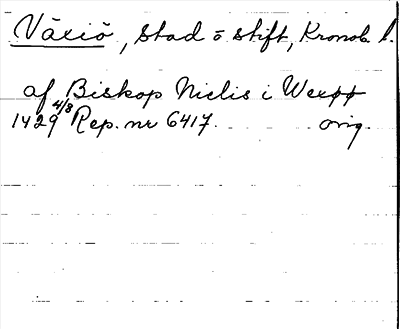 Växiö, stad o stift, Kronob. l.
af Biskop Niclis i Wexøø
1429 4/8 Rep. nr 6417. orig.